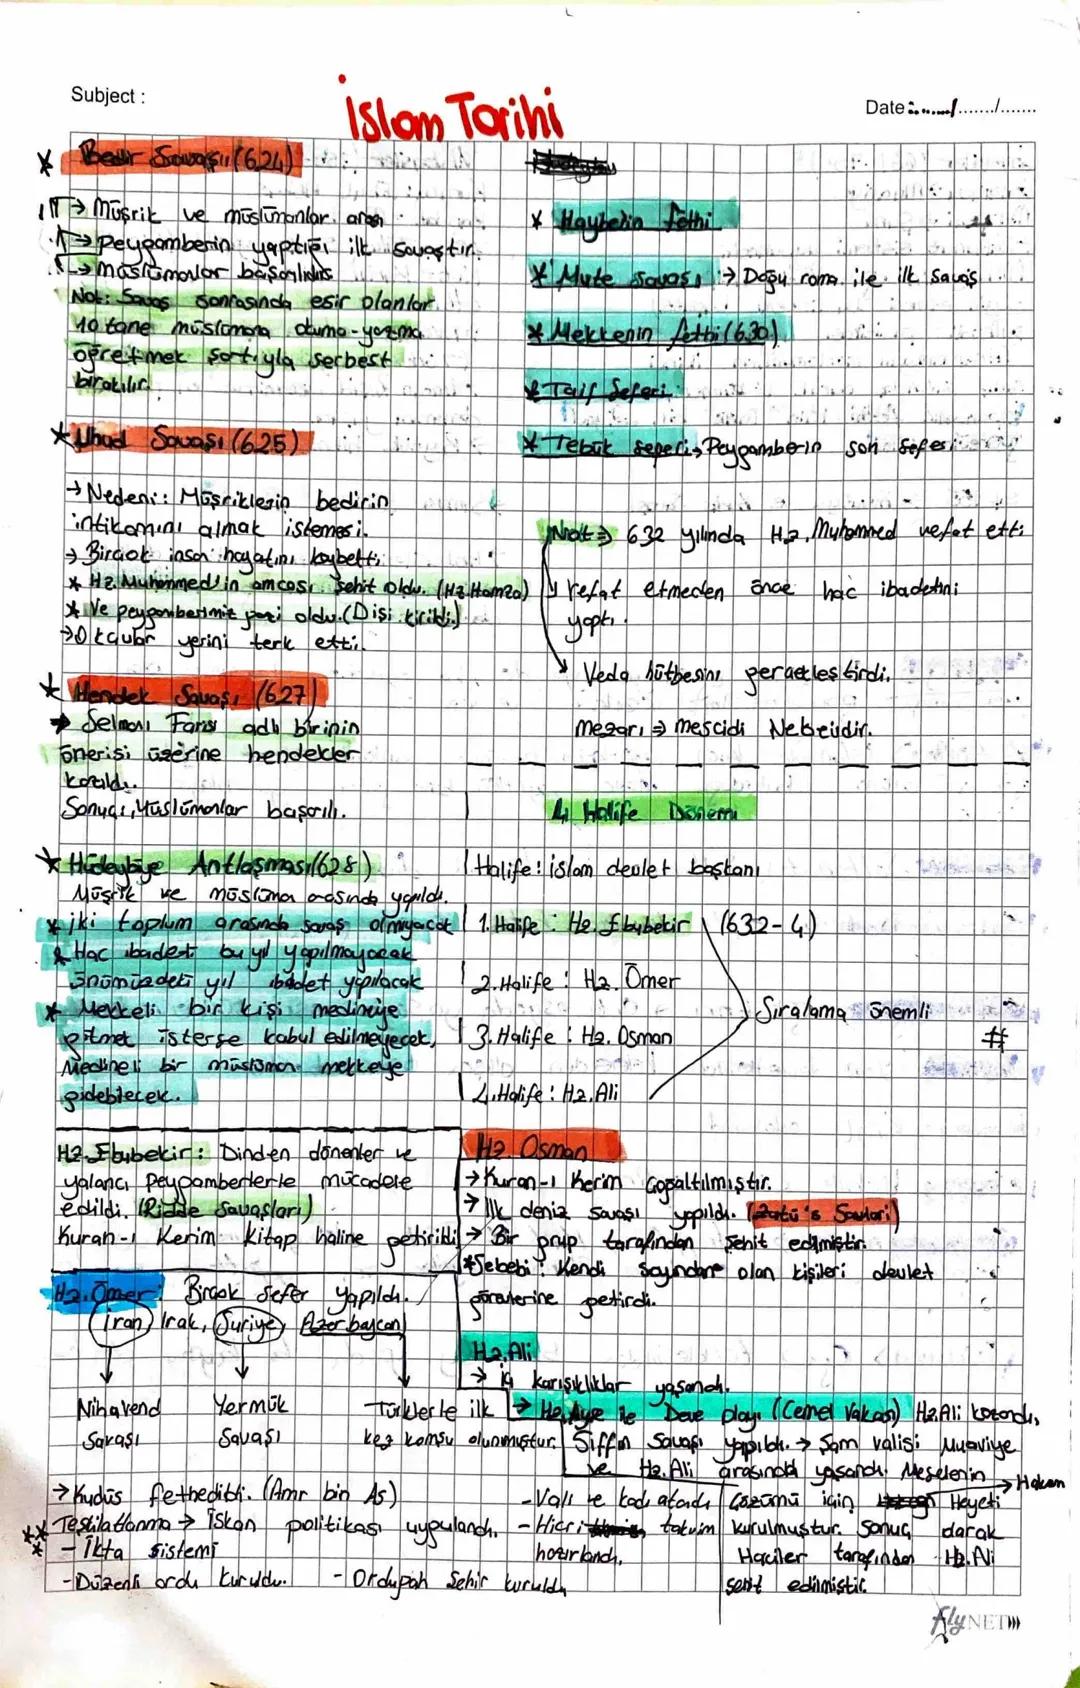 Subject :
İslam Tarihi
Date:....../......./.......
* Bedir Savaşı (624)
→ Müşrik ve müslümanlar arası
→ peygamberin yaptığı ilk savaştır.
→ müslümanlar başarılıdır
Not: Savaş sonrasında esir olanlar
10 tane müslümana okuma-yazma
öğretmek şartıyla serbest
bırakılır.
* Uhud Savaşı (625)
→ Nedeni: Müşriklerin bedirin
intikamını almak istemesi.
→ Birçok insan hayatını kaybetti
* Hz. Muhammed'in amcası şehit oldu. (Hz Hamza)
* Ve peygamberimiz gazi oldu. (Dişi kırıldı.)
→ Okçular yerini terk etti.
* Hendek Savaşı (627)
→ Selmanı Farisi adlı birinin
önerisi üzerine hendekler
kazıldı.
Sonuçı, Müslümanlar başarılı.
* Hüdeybiye Antlaşması (628)
Müşrik ve müslüman arasında yapıldı.
* iki toplum arasında savaş olmayacak
* Hac ibadeti bu yıl yapılmayacak
önümüzdeki yıl ibadet yapılacak
* Mekkeli bir kişi medineye
gitmek isterse kabul edilmeyecek,
Medineli bir müslüman mekkeye
gidebilecek.
* Hayberin fethi
* Mute savaşı → Doğu roma ile ilk savaş
* Mekkenin fethi (630)
* Taif Seferi
* Tebük seferi → Peygamberin son seferi
Not ⇒ 632 yılında Hz. Muhammed vefat etti
vefat etmeden önce hac ibadetini
yaptı.
Veda hütbesini gerçekleştirdi.
mezarı ⇒ mescidi Nebevidir.
4 Halife Dönemi
Halife: islam devlet başkanı
1. Halife : Hz. Ebubekir (632-4)
2. Halife : Hz. Ömer
Sıralama önemli
#
3. Halife : Hz. Osman
4. Halife : Hz. Ali
Hz. Ebubekir : Dinden dönenler ve
yalancı Peygamberlerle mücadele
edildi. (Ridde Savaşları)
Kuran-ı Kerim Kitap haline getirildi
Hz. Ömer : Birçok sefer yapıldı.
İran, Irak, Suriye, Azerbaycan
Nihavend Yermük Türklerle ilk
Savaşı Savaşı kez komşu olunmuştur.
→ Kudüs fethedildi. (Amr bin As)
** Teşkilatlanma → İskan politikası uygulandı.
- İkta sistemi
- Düzenli ordu kuruldu. - Ordugah Şehir kuruldu
- Vali ve kadı atadı
- Hicri takvim
hazırlandı.
Hz. Osman
→ Kuran-ı Kerim Çoğaltılmıştır.
→ İlk deniz savaşı yapıldı.
→ Bir grup tarafından Şehit edilmiştir.
* Sebebi : Kendi soyundan olan kişileri devlet
görevlerine getirdi.
Hz. Ali
→ iç karışıklıklar yaşandı.
→ Hz. Ayşe ile Deve olayı (Cemel Vakası) Hz Ali kazandı.
Siffin Savaşı yapıldı. → Şam valisi Muaviye
ve Hz. Ali arasında yaşandı. Meselenin
Çözümü için Heyeti → Hakem
kurulmuştur. Sonuç olarak
Hariciler tarafından Hz. Ali
şehit edilmiştir.
FlyNET